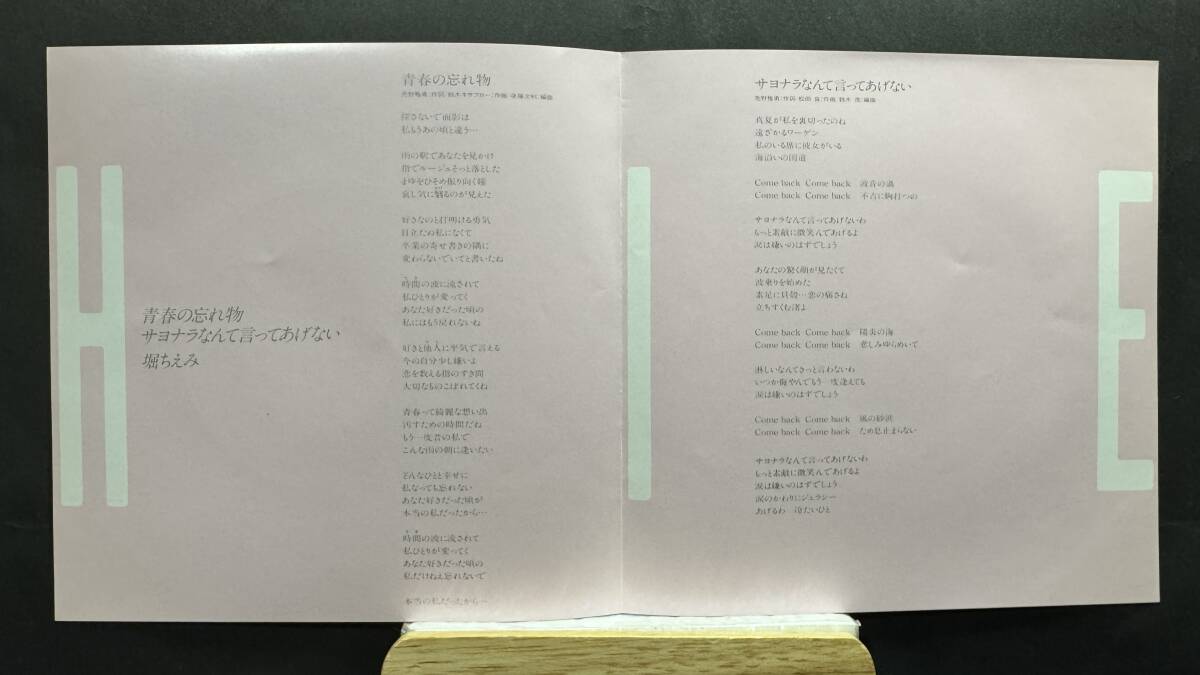 H
青春の忘れ物
サヨナラなんて言ってあげない
堀ちえみ
青春の忘れ物
売野雅勇:作詞/鈴木キサブロー:作曲/後藤次利:編曲
探さないで面影は
私もうあの頃と違う…
雨の駅であなたを見かけ
指でルージュそっと落とした
まゆをひそめ振り向く瞳
哀し気に翳るのが見えた
好きなのと打明ける勇気
目立たぬ私になくて
卒業の寄せ書きの隅に
変わらないでいてと書いたね
時間の波に流されて
私ひとりが変ってく
あなた好きだった頃の
私にはもう戻れないね
好きと他人に平気で言える
今の自分少し嫌いよ
恋を数える指のすき間
大切なものこぼれてくね
青春って綺麗な想い出
汚すための時間だね
もう一度昔の私で
こんな雨の朝に逢いたい
どんなひとと幸せに
私なっても忘れない
あなた好きだった頃が
本当の私だったから…
時間の波に流されて
私ひとりが変ってく
あなた好きだった頃の
私だけねえ忘れないで
本当の私だったから…
I
サヨナラなんて言ってあげない
売野雅勇:作詞/松田 良:作曲/鈴木 茂:編曲
真夏が私を裏切ったのね
遠ざかるワーゲン
私のいる席に彼女がいる
海沿いの国道
Come back Come back 波音の渦
Come back Come back 不吉に胸打つの
サヨナラなんて言ってあげないわ
もっと素敵に微笑んであげるよ
涙は嫌いのはずでしょう
あなたの驚く顔が見たくて
波乗りを始めた
素足に貝殻…恋の痛さね
立ちすくむ渚よ
Come back Come back 陽炎の海
Come back Come back 悲しみゆらめいて
淋しいなんてきっと言わないわ
いつか悔やんでもう一度逢えても
涙は嫌いのはずでしょう
Come back Come back 風の砂浜
Come back Come back ため息止まらない
サヨナラなんて言ってあげないわ
もっと素敵に微笑んであげるよ
涙は嫌いのはずでしょう
涙のかわりにジェラシー
あげるわ 冷たいひと
E